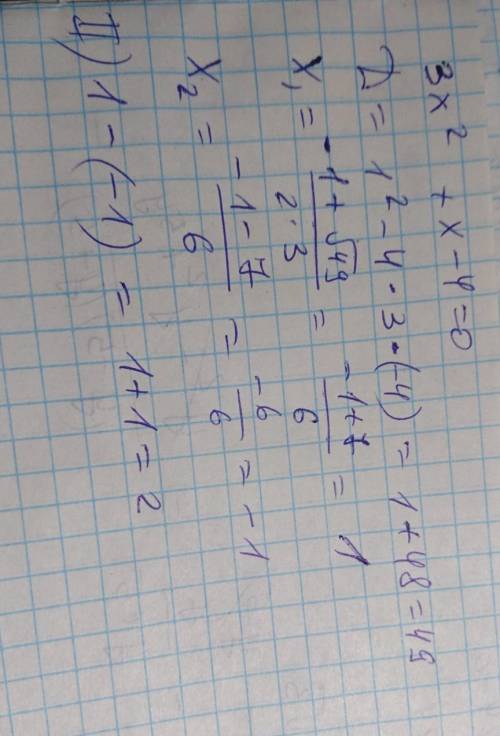 3x² + x - 4 = 0
D = 1² - 4 · 3 · (-4) = 1 + 48 = 49
x₁ = (-1 + √49)/(2 · 3) = (-1 + 7)/6 = 1
x₂ = (-1 - 7)/6 = -6/6 = -1
II) 1 - (-1) = 1 + 1 = 2